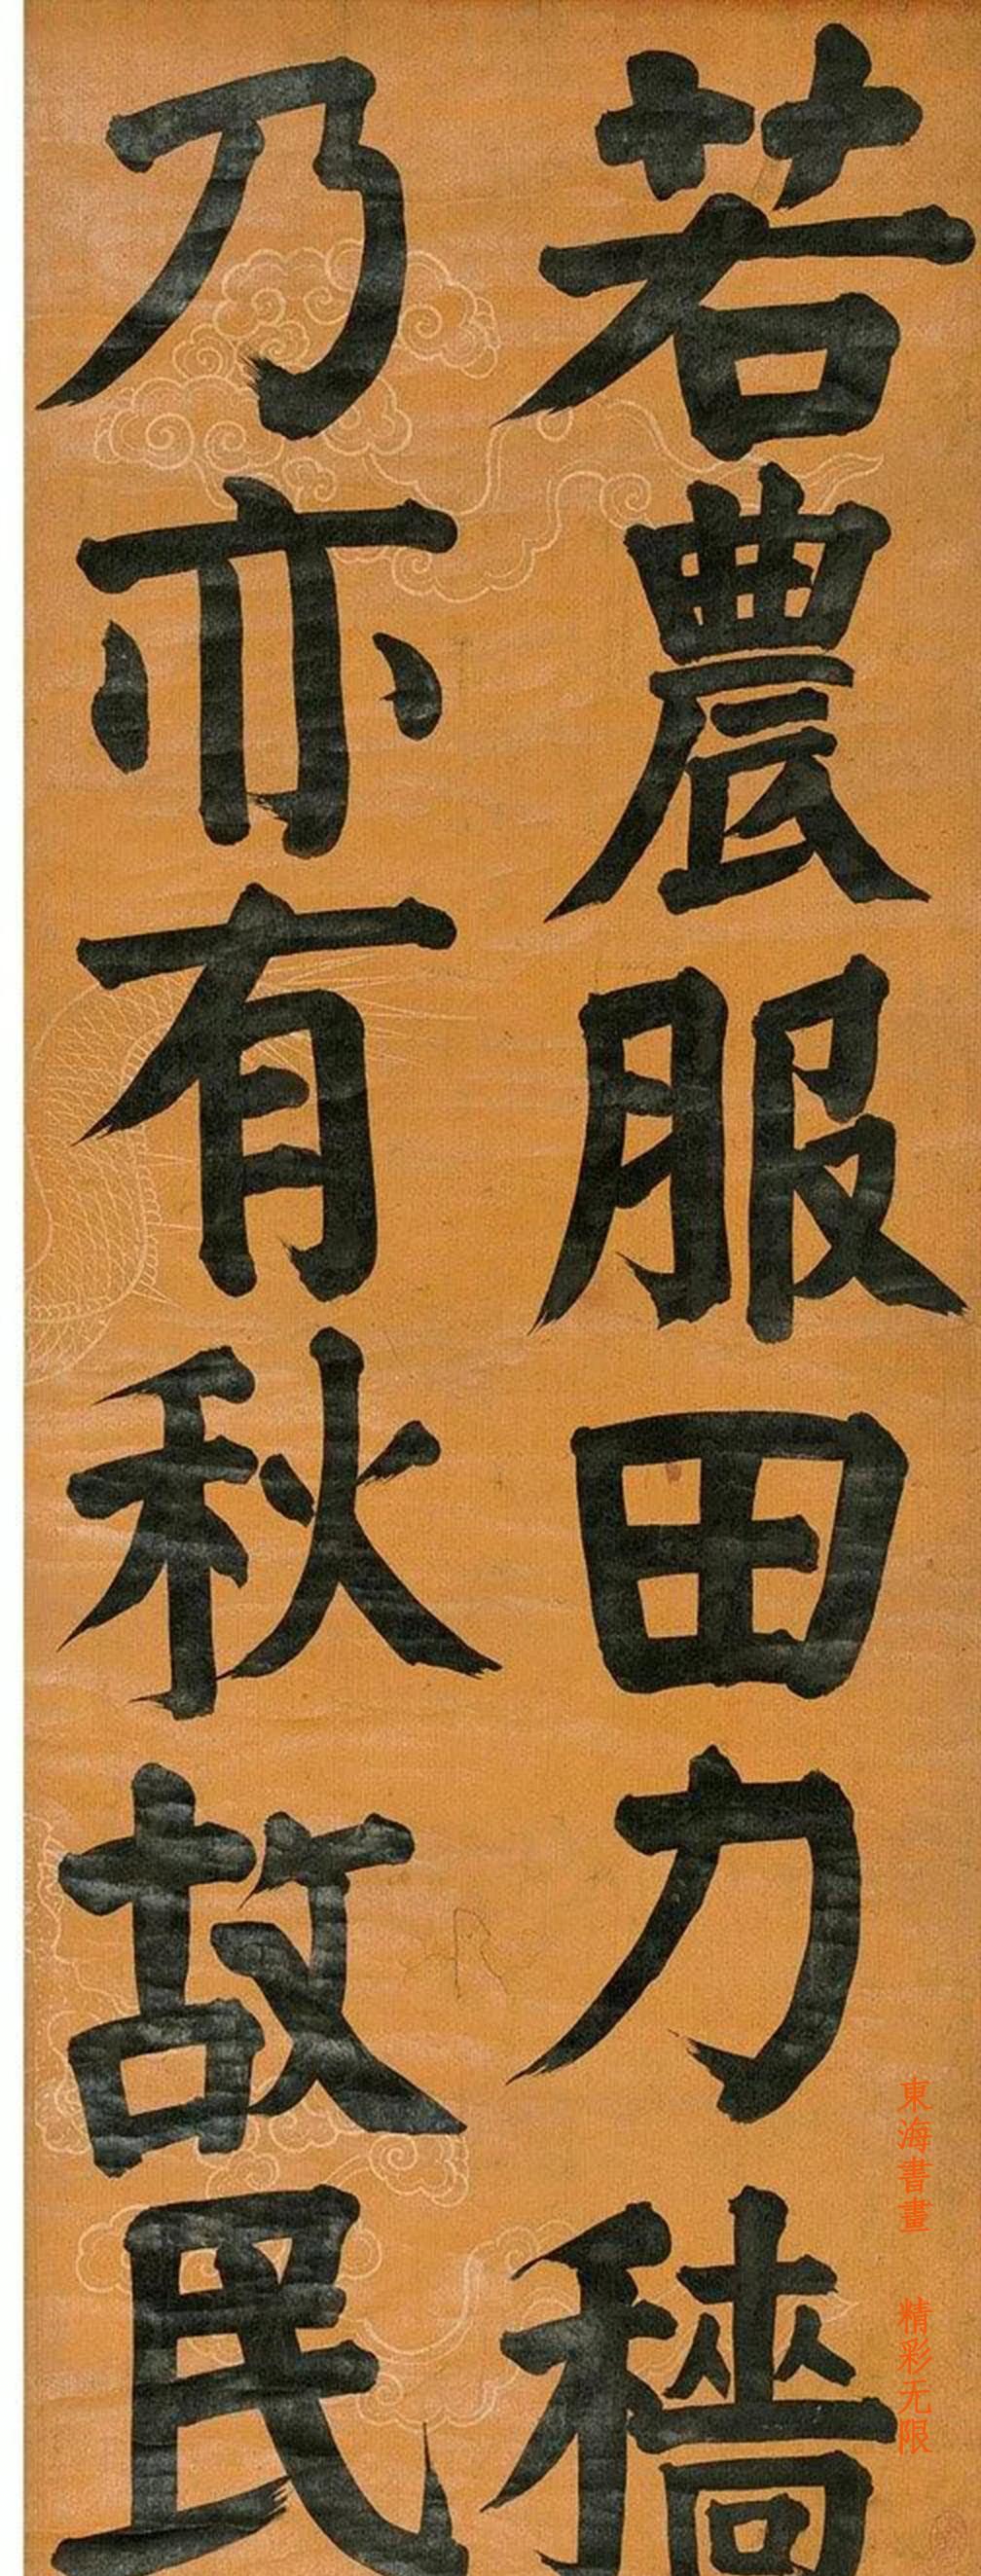 若農服田力穡
乃亦有秋故民
東海書畫 精彩无限